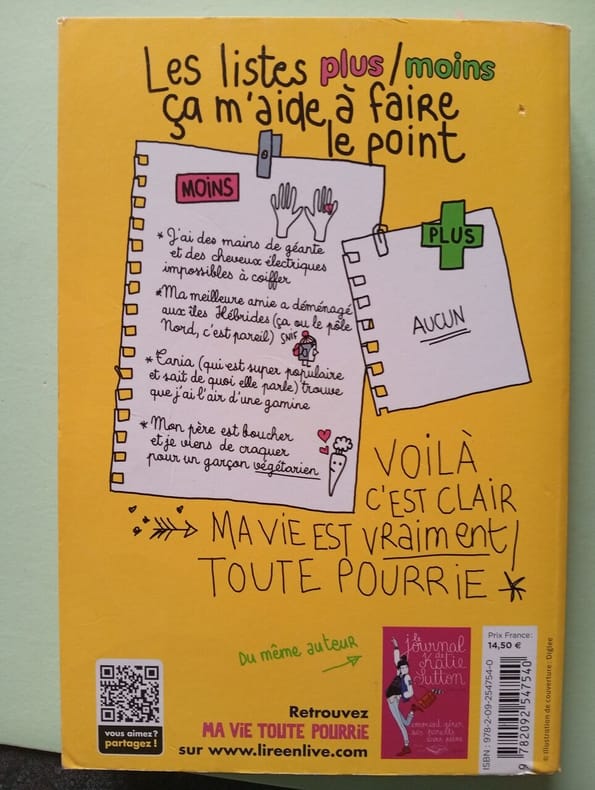 Les listes plus/moins
ça m'aide à faire
le point
MOINS
* J'ai des mains de géante
et des cheveux électriques
impossibles à coiffer
* Ma meilleure amie a déménagé
aux îles Hébrides (ça ou le pôle
Nord, c'est pareil) SNIF
* Tania (qui est super populaire
et sait de quoi elle parle) trouve
que j'ai l'air d'une gamine
* Mon père est boucher
et je viens de craquer
pour un garçon végétarien
PLUS
AUCUN
VOILÀ
C'EST CLAIR
MA VIE EST VRAIMENT
TOUTE POURRIE *
Du même auteur
le journal
de
Katie
Sutton
comment gérer
ses parents
sans peine
Prix France :
14,50 €
ISBN : 978-2-09-254754-0
9 782092 547540
© Illustration de couverture : Diglee
vous aimez?
partagez !
Retrouvez
MA VIE TOUTE POURRIE
sur www.lireenlive.com